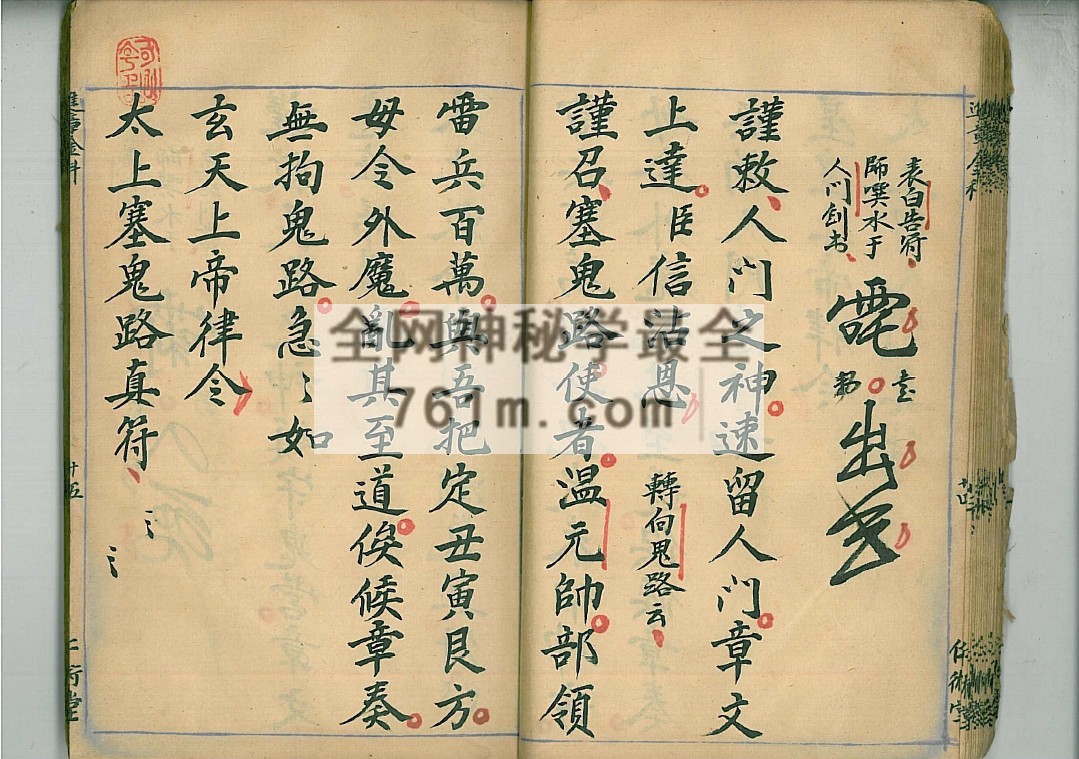 表白告符
師噀水于
人门劍书
出
謹敕人门之神速留人门章文
上達臣信沾恩
轉向鬼路云
謹召塞鬼路使者温元帥部領
雷兵百萬與吾把定丑寅艮方
毋令外魔亂其至道俟候章奏
無拘鬼路急〻如
玄天上帝律令
太上塞鬼路真符
〻
〻
十五
全网神秘学最全
761m.com